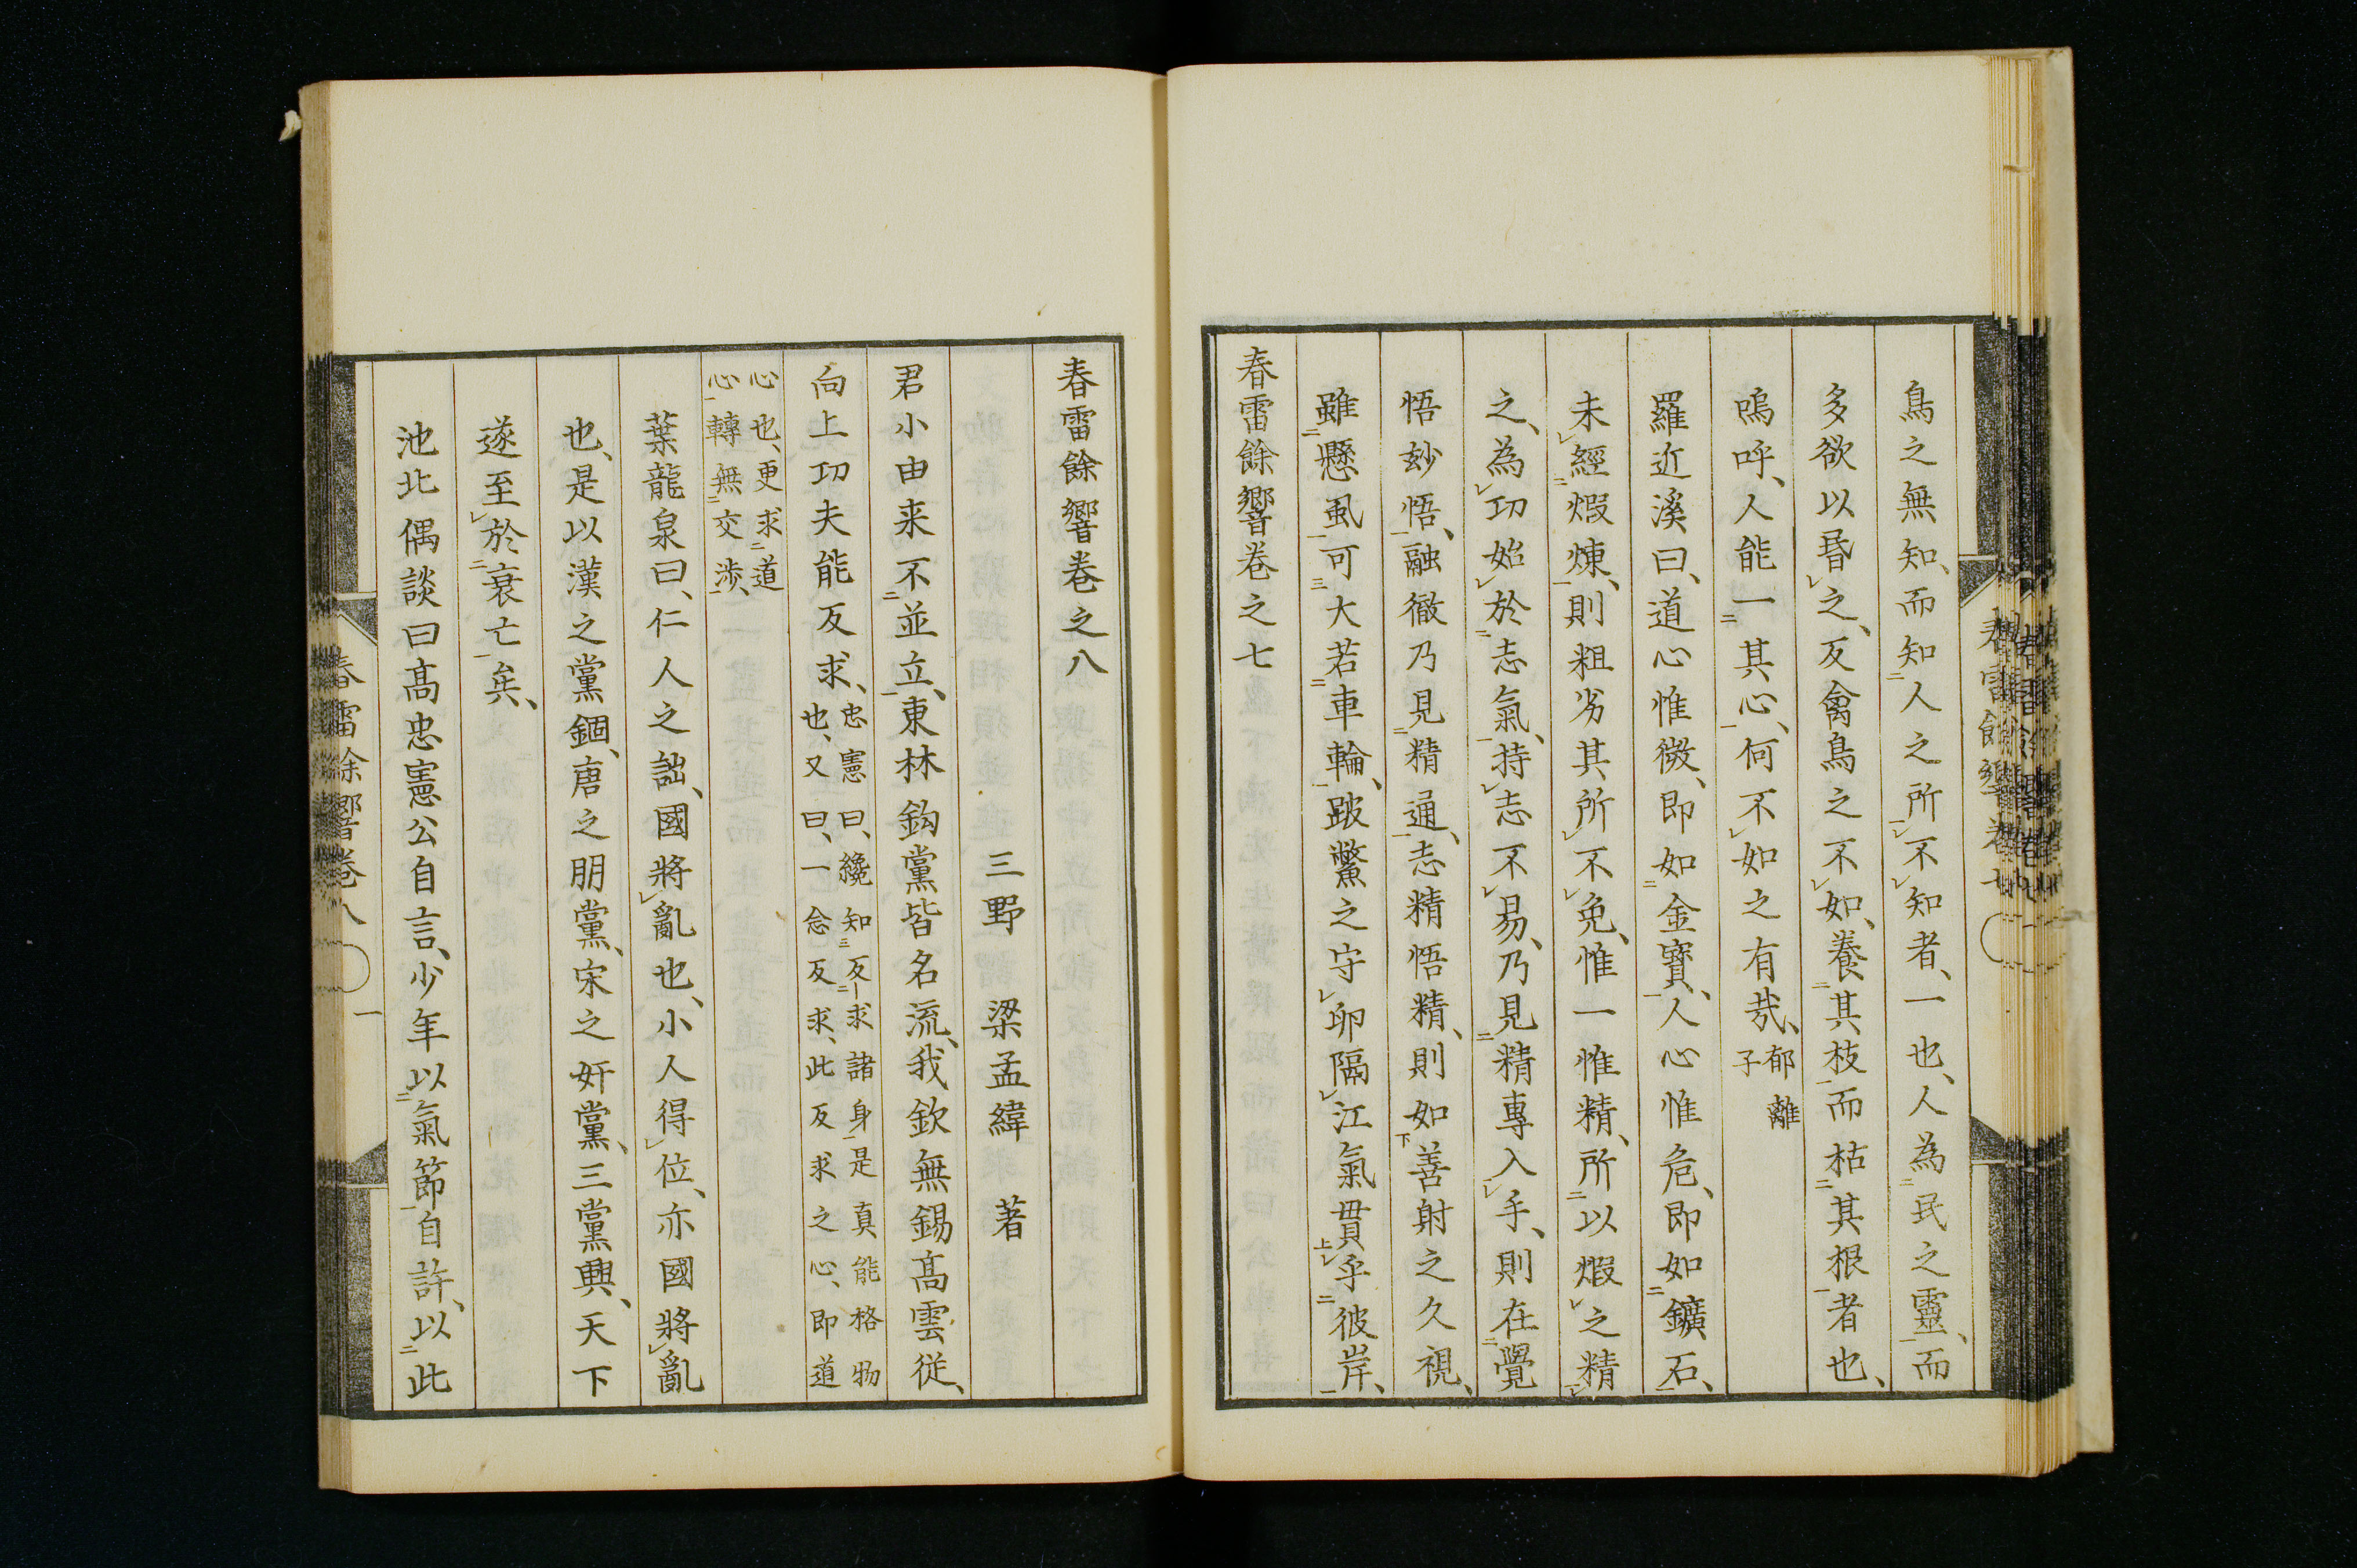 鳥之無知、而知人之所不知者、一也、人為民之靈、而
多欲以昏之、反禽鳥之不如、養其枝而枯其根者也、
嗚呼、人能一其心、何不如之有哉、郁離子
羅近溪曰、道心惟微、即如金寶、人心惟危、即如鑛石、
未經煆煉、則粗劣其所不免、惟一惟精、所以煆之精
之、為功始於志氣、持志不易、乃見精專入手、則在覺
悟妙悟、融徹乃見精通、志精悟精、則如善射之久視、
雖懸虱可大若車輪、跛鱉之守卵隔江氣貫乎彼岸、
春雷餘響卷之七
春雷餘響卷之八
三野 梁孟緯 著
君小由来不並立、東林鈎黨皆名流、我欽無錫高雲從、
向上功夫能反求、忠憲曰、纔知反求諸身是真能格物
也、又曰、一念反求、此反求之心、即道
心也、更求道
心轉無交渉、
葉龍泉曰、仁人之詘、國將亂也、小人得位、亦國將亂
也、是以漢之黨錮、唐之朋黨、宋之奸黨、三黨興、天下
遂至於衰亡矣、
池北偶談曰高忠憲公自言、少年以氣節自許、以此
春雷餘響卷八
一